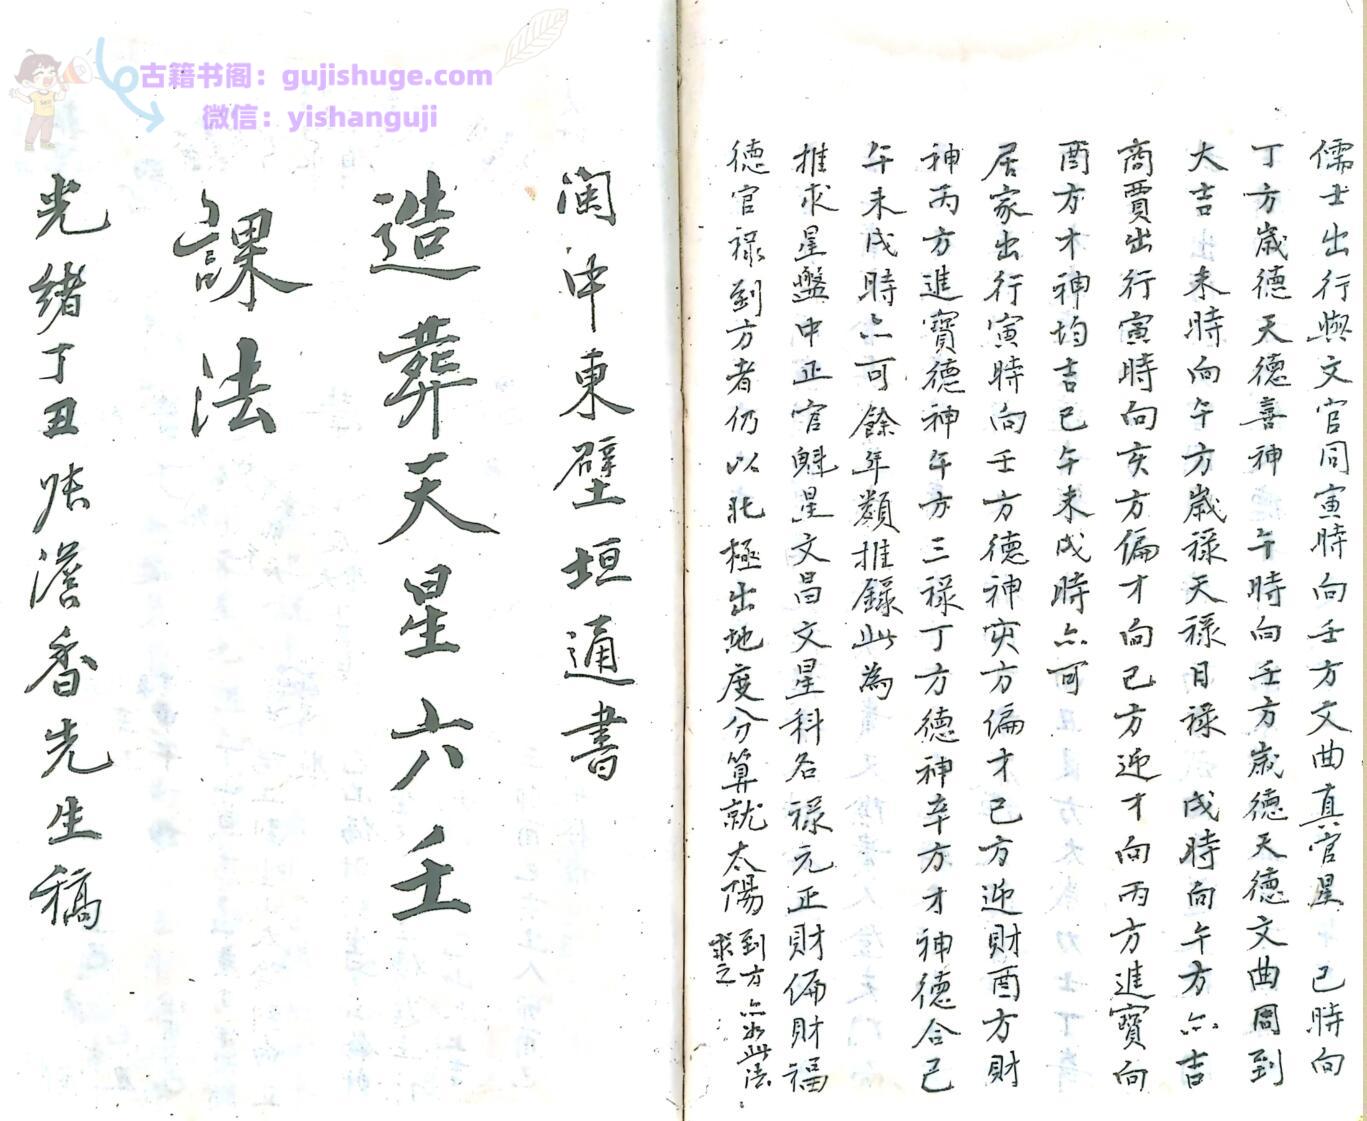 古籍书阁：gujishuge.com
微信：yishanguji
儒士出行與文官同寅時向壬方文曲真官星 巳時向
丁方歲德天德喜神 午時向壬方歲德天德文曲周到
大吉出未時向午方歲祿天祿日祿 戌時向午方亦吉
商賈出行寅時向亥方偏才向巳方迎才向丙方進寶向
酉方才神均吉巳午未戌時亦可
居家出行寅時向壬方德神亥方偏才巳方迎財酉方財
神丙方進寶德神午方三祿丁方德神辛方才神德合己
午未戌時亦可餘年類推錄此為
推求星盤中正官魁星文昌文星科名祿元正財偏財福
德官祿到方者仍以北極出地度分算就太陽到方亦必此法
求之
閩中東壁垣通書
造葬天星六壬
課法
光緒丁丑 澹香先生稿